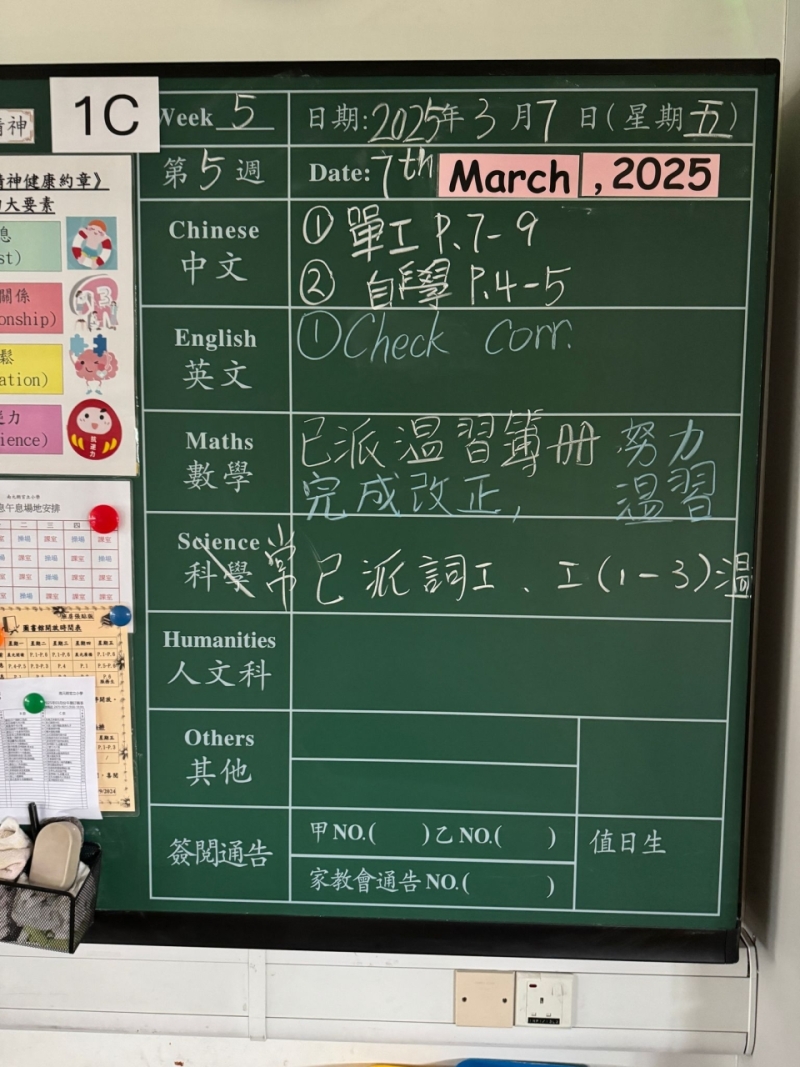 1C
精神
神健康約章》
大要素
息
st)
關係
onship)
鬆
ation)
力
ience)
息午息場地安排
二 三 四
圖書館開放時間表
Week 5
日期:2025年3月7日(星期五)
第5週
Date: 7th March , 2025
Chinese
中文
① 單工 P.7-9
② 自學 P.4-5
English
英文
① Check Corr.
Maths
數學
已派溫習簿冊 努力
完成改正, 溫習
Science
科學
常 已派詞工、工(1-3)溫
Humanities
人文科
Others
其他
簽閱通告
甲NO.( )乙NO.( )
家教會通告NO.( )
值日生